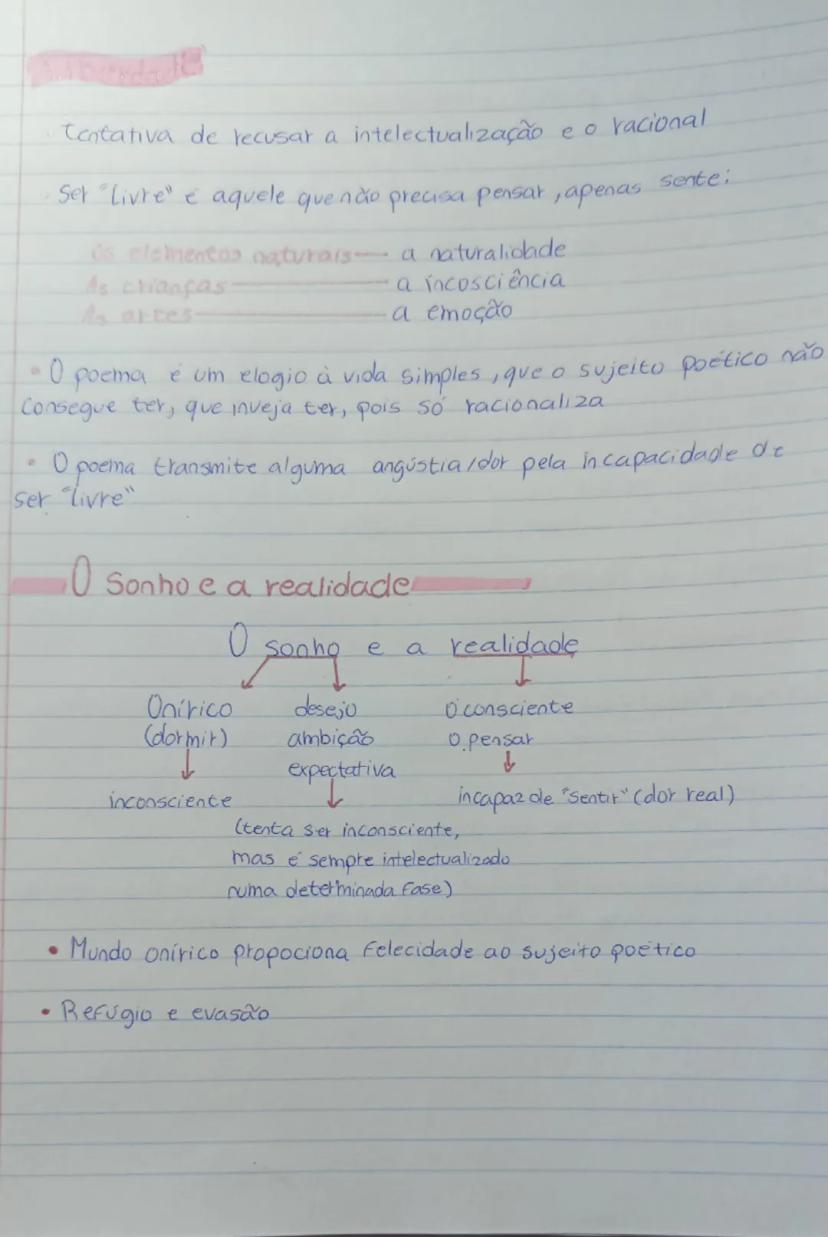 Liberdade
Tentativa de recusar a intelectualização e o racional
Ser "livre" é aquele que não precisa pensar, apenas sente:
Os elementos naturais — a naturalidade
As crianças — a incosciência
As artes — a emoção
• O poema é um elogio à vida simples, que o sujeito poético não
consegue ter, que inveja ter, pois só racionaliza
• O poema transmite alguma angústia/dor pela incapacidade de
ser "livre"
O Sonho e a realidade
O sonho e a realidade
Onírico desejo o consciente
(dormir) ambição o pensar
expectativa
inconsciente incapaz de "sentir" (dor real)
(tenta ser inconsciente,
mas é sempre intelectualizado
numa determinada fase)
• Mundo onírico propociona felecidade ao sujeito poético
• Refúgio e evasão